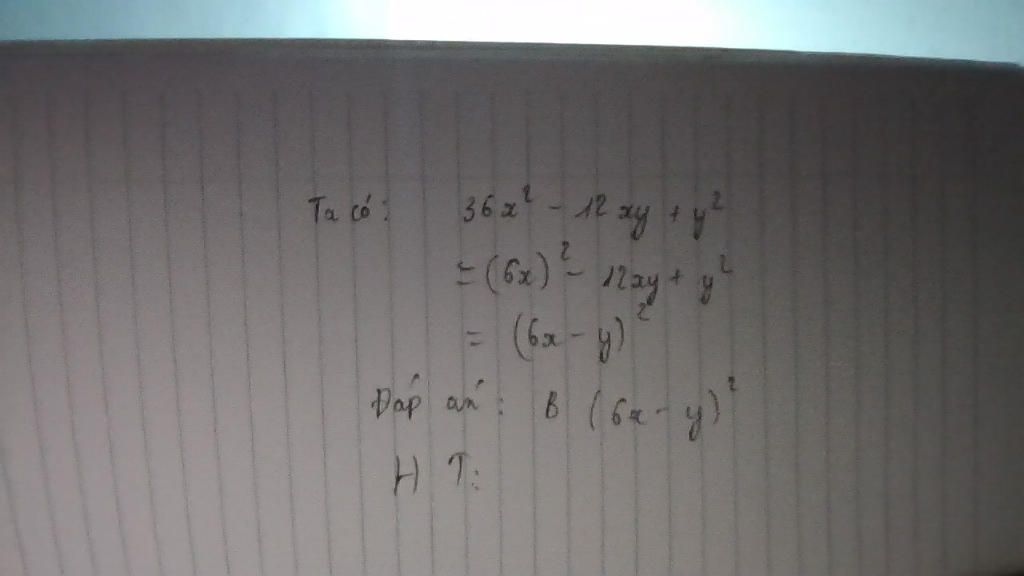 Ta có: 36x² - 12xy + y²
= (6x)² - 12xy + y²
= (6x - y)²
Đáp án: B (6x - y)²
H T: